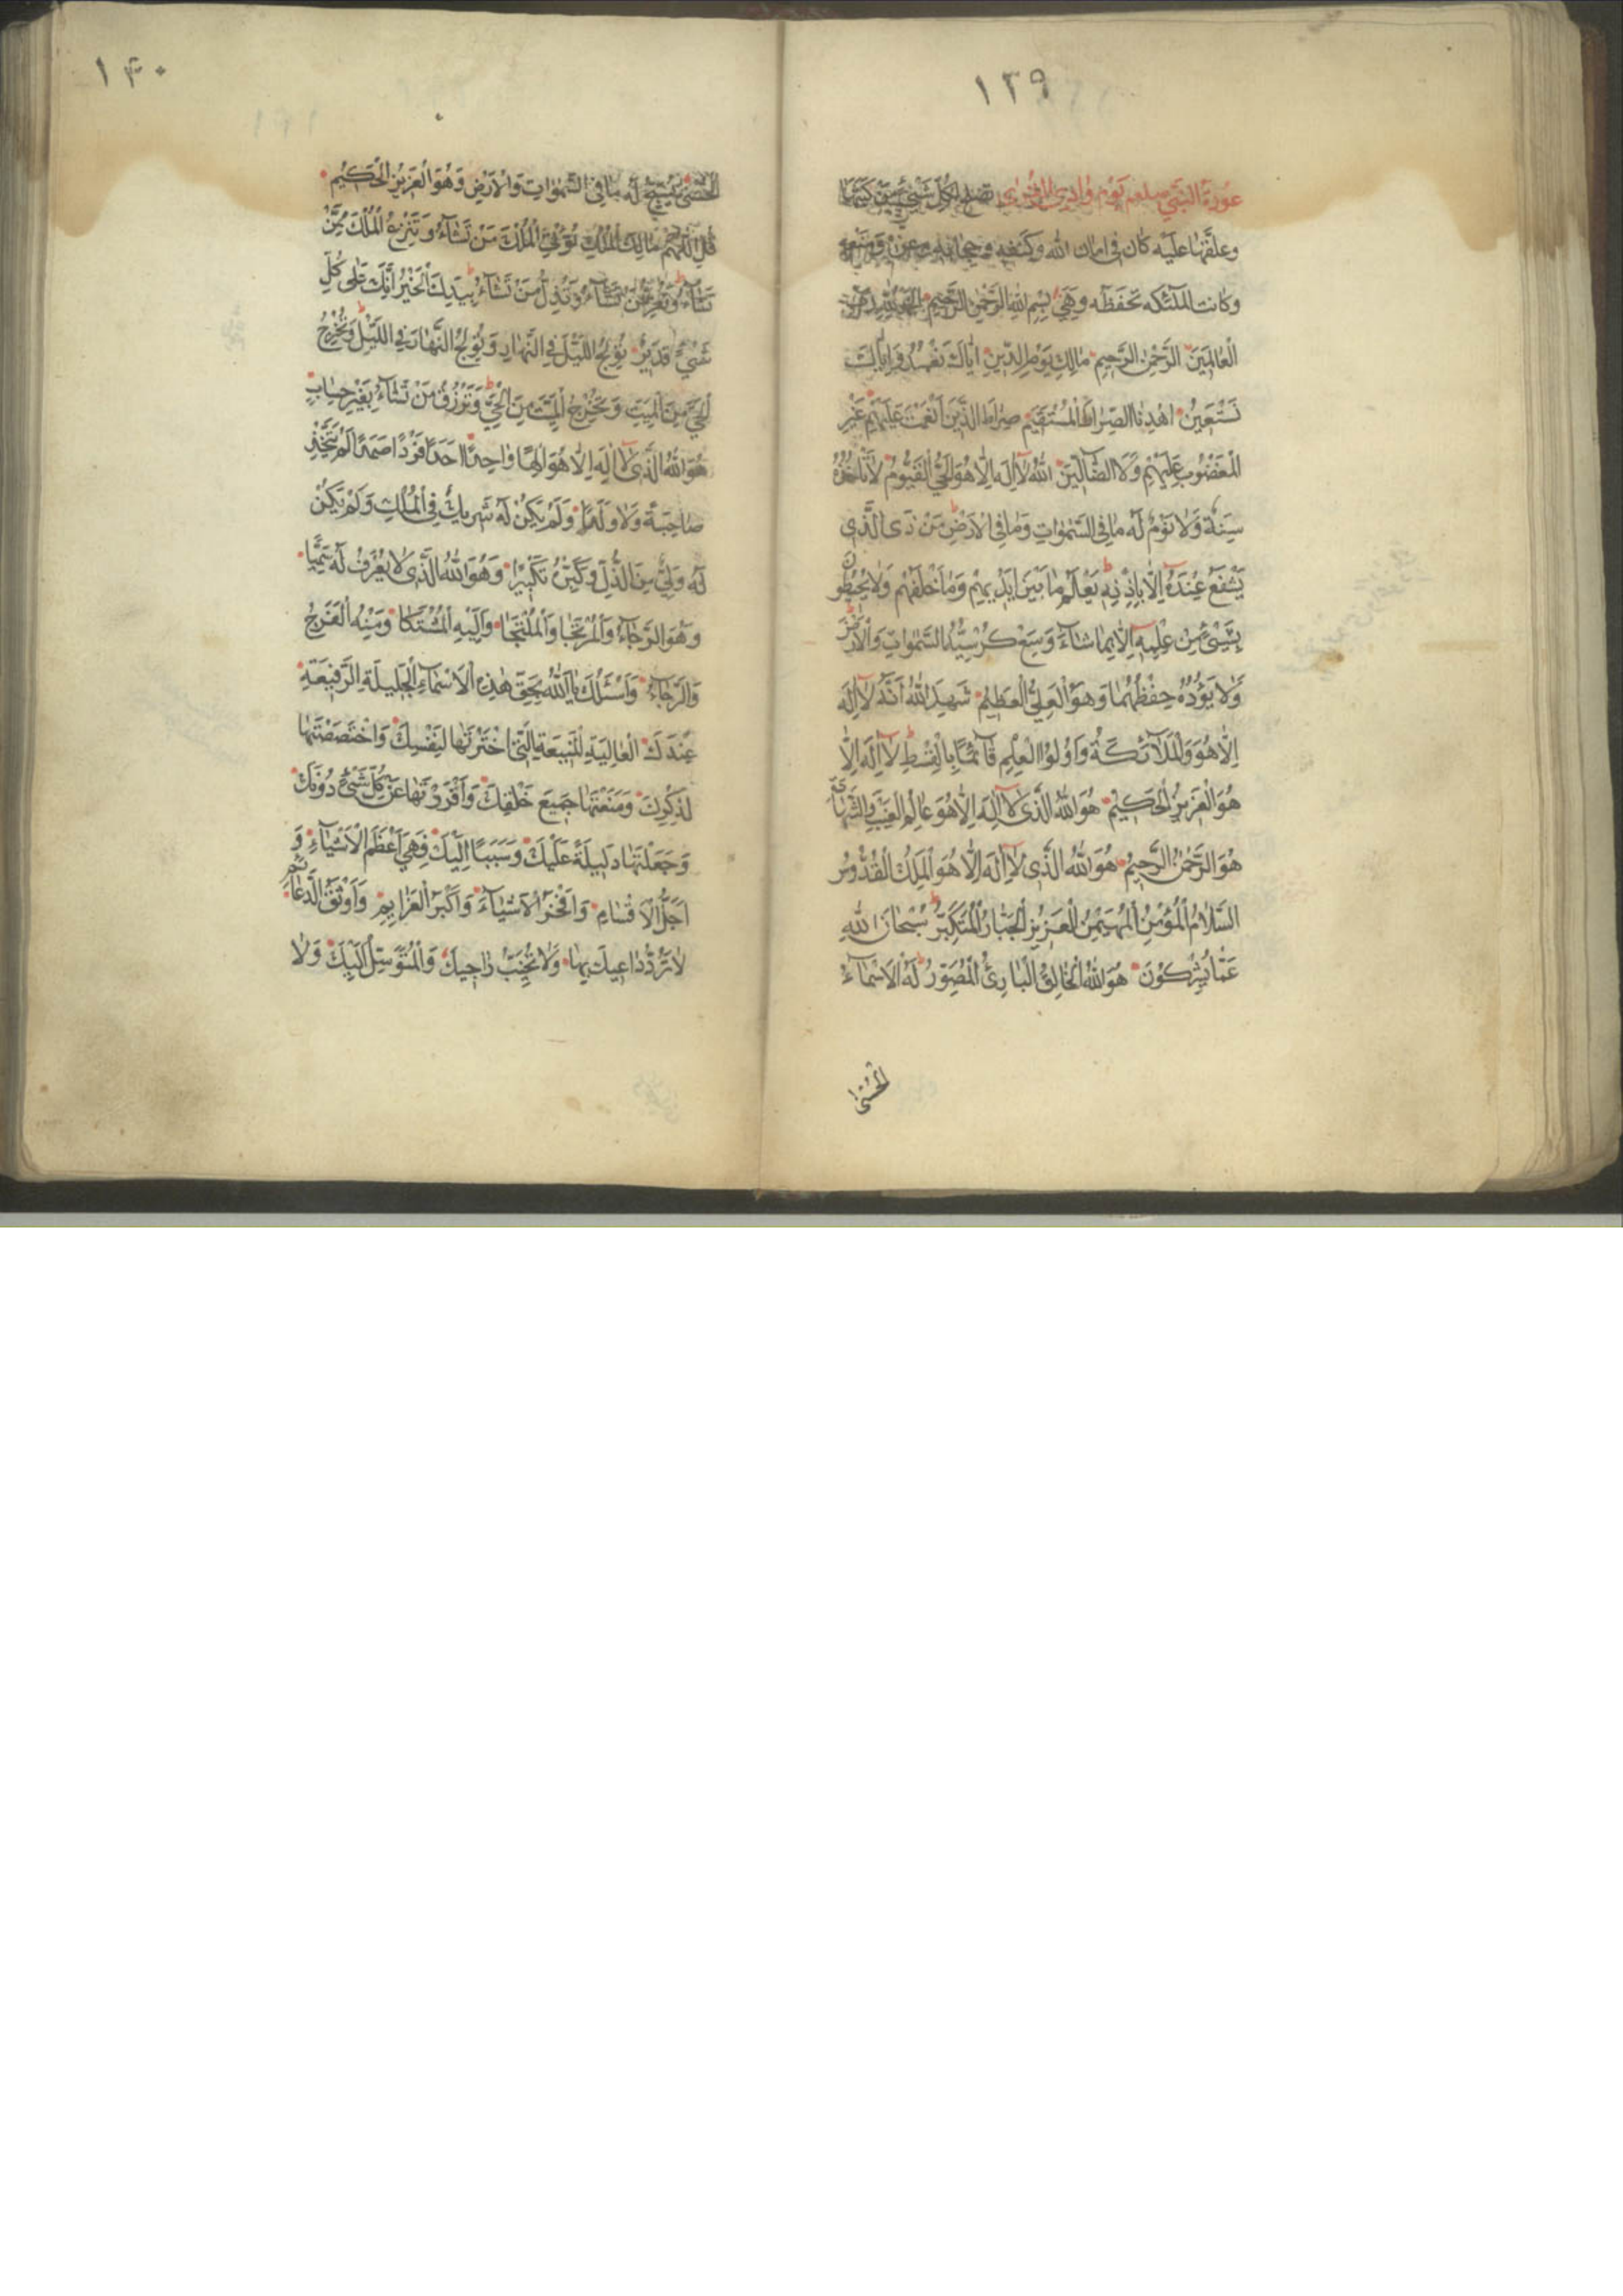 ١٣٩
عوذة النبي صلعم يوم وادي القرى تصلح لكل شئ من كتبها
وعلقها عليه كان في امان الله وكنفه وحجابه وعزه ومنعه
وكانت الملئكه تحفظه وهي بِسْمِ اللهِ الرَّحْمٰنِ الرَّحِيمِ اَلْحَمْدُ لِلّٰهِ رَبِّ
الْعٰالَمِينَ الرَّحْمٰنِ الرَّحِيمِ مٰالِكِ يَوْمِ الدِّينِ اِيّٰاكَ نَعْبُدُ وَاِيّٰاكَ
نَسْتَعِينُ اهْدِنَا الصِّرٰاطَ الْمُسْتَقِيمَ صِرٰاطَ الَّذِينَ اَنْعَمْتَ عَلَيْهِمْ غَيْرِ
الْمَغْضُوبِ عَلَيْهِمْ وَلَا الضّٰالِّينَ اَللهُ لٰا اِلٰهَ اِلّٰا هُوَ الْحَيُّ الْقَيُّومُ لٰا تَأْخُذُهُ
سِنَةٌ وَلٰا نَوْمٌ لَهُ مٰا فِي السَّمٰوٰاتِ وَمٰا فِي الْاَرْضِ مَنْ ذَى الَّذِي
يَشْفَعُ عِنْدَهُ اِلّٰا بِاِذْنِهِ يَعْلَمُ مٰا بَيْنَ اَيْدِيهِمْ وَمٰا خَلْفَهُمْ وَلٰا يُحِيطُونَ
بِشَيْءٍ مِنْ عِلْمِهِ اِلّٰا بِمٰا شٰاءَ وَسِعَ كُرْسِيُّهُ السَّمٰوٰاتِ وَالْاَرْضَ
وَلٰا يَؤُدُهُ حِفْظُهُمٰا وَهُوَ الْعَلِيُّ الْعَظِيمُ شَهِدَ اللهُ اَنَّهُ لٰا اِلٰهَ
اِلّٰا هُوَ وَالْمَلٰائِكَةُ وَاُولُوا الْعِلْمِ قٰائِمًا بِالْقِسْطِ لٰا اِلٰهَ اِلّٰا
هُوَ الْعَزِيزُ الْحَكِيمُ هُوَ اللهُ الَّذِي لٰا اِلٰهَ اِلّٰا هُوَ عٰالِمُ الْغَيْبِ وَالشَّهٰادَةِ
هُوَ الرَّحْمٰنُ الرَّحِيمُ هُوَ اللهُ الَّذِي لٰا اِلٰهَ اِلّٰا هُوَ الْمَلِكُ الْقُدُّوسُ
السَّلٰامُ الْمُؤْمِنُ الْمُهَيْمِنُ الْعَزِيزُ الْجَبّٰارُ الْمُتَكَبِّرُ سُبْحٰانَ اللهِ
عَمّٰا يُشْرِكُونَ هُوَ اللهُ الْخٰالِقُ الْبٰارِئُ الْمُصَوِّرُ لَهُ الْاَسْمٰاءُ
الْحُسْنىٰ
١۴٠
الْحُسْنىٰ يُسَبِّحُ لَهُ مٰا فِي السَّمٰوٰاتِ وَالْاَرْضِ وَهُوَ الْعَزِيزُ الْحَكِيمُ
قُلِ اللّٰهُمَّ مٰالِكَ الْمُلْكِ تُؤْتِي الْمُلْكَ مَنْ تَشٰاءُ وَتَنْزِعُ الْمُلْكَ مِمَّنْ
تَشٰاءُ وَتُعِزُّ مَنْ تَشٰاءُ وَتُذِلُّ مَنْ تَشٰاءُ بِيَدِكَ الْخَيْرُ اِنَّكَ عَلىٰ كُلِّ
شَيْءٍ قَدِيرٌ تُولِجُ اللَّيْلَ فِي النَّهٰارِ وَتُولِجُ النَّهٰارَ فِي اللَّيْلِ وَتُخْرِجُ
الْحَيَّ مِنَ الْمَيِّتِ وَتُخْرِجُ الْمَيِّتَ مِنَ الْحَيِّ وَتَرْزُقُ مَنْ تَشٰاءُ بِغَيْرِ حِسٰابٍ
هُوَ اللهُ الَّذِي لٰا اِلٰهَ اِلّٰا هُوَ اِلٰهًا وٰاحِدًا اَحَدًا فَرْدًا صَمَدًا لَمْ يَتَّخِذْ
صٰاحِبَةً وَلٰا وَلَدًا وَلَمْ يَكُنْ لَهُ شَرِيكٌ فِي الْمُلْكِ وَلَمْ يَكُنْ
لَهُ وَلِيٌّ مِنَ الذُّلِّ وَكَبِّرْهُ تَكْبِيرًا وَهُوَ اللهُ الَّذِي لٰا يُعْرَفُ لَهُ سَمِيًّا
وَهُوَ الرَّجٰاءُ وَالْمُرْتَجٰا وَالْمُلْتَجٰا وَاِلَيْهِ الْمُشْتَكٰا وَمِنْهُ الْفَرَجُ
وَالرَّجٰاءُ وَاَسْئَلُكَ يٰا اَللهُ بِحَقِّ هٰذِهِ الْاَسْمٰاءِ الْجَلِيلَةِ الرَّفِيعَةِ
عِنْدَكَ الْعٰالِيَةِ الْمَنِيعَةِ الَّتِي اخْتَرْتَهٰا لِنَفْسِكَ وَاخْتَصَصْتَهٰا
لِذِكْرِكَ وَمَنَعْتَهٰا جَمِيعَ خَلْقِكَ وَاَفْرَدْتَهٰا عَنْ كُلِّ شَيْءٍ دُونَكَ
وَجَعَلْتَهٰا دَلِيلَةً عَلَيْكَ وَسَبَبًا اِلَيْكَ فَهِيَ اَعْظَمُ الْاَسْمٰاءِ وَ
اَجَلُّ الْاَقْسٰامِ وَاَفْخَرُ الْاَشْيٰاءِ وَاَكْبَرُ الْعَزٰايِمِ وَاَوْثَقُ الدَّعٰائِمِ
لٰا تَرُدُّ دٰاعِيكَ بِهٰا وَلٰا تُخَيِّبُ رٰاجِيكَ وَالْمُتَوَسِّلَ اِلَيْكَ وَلٰا